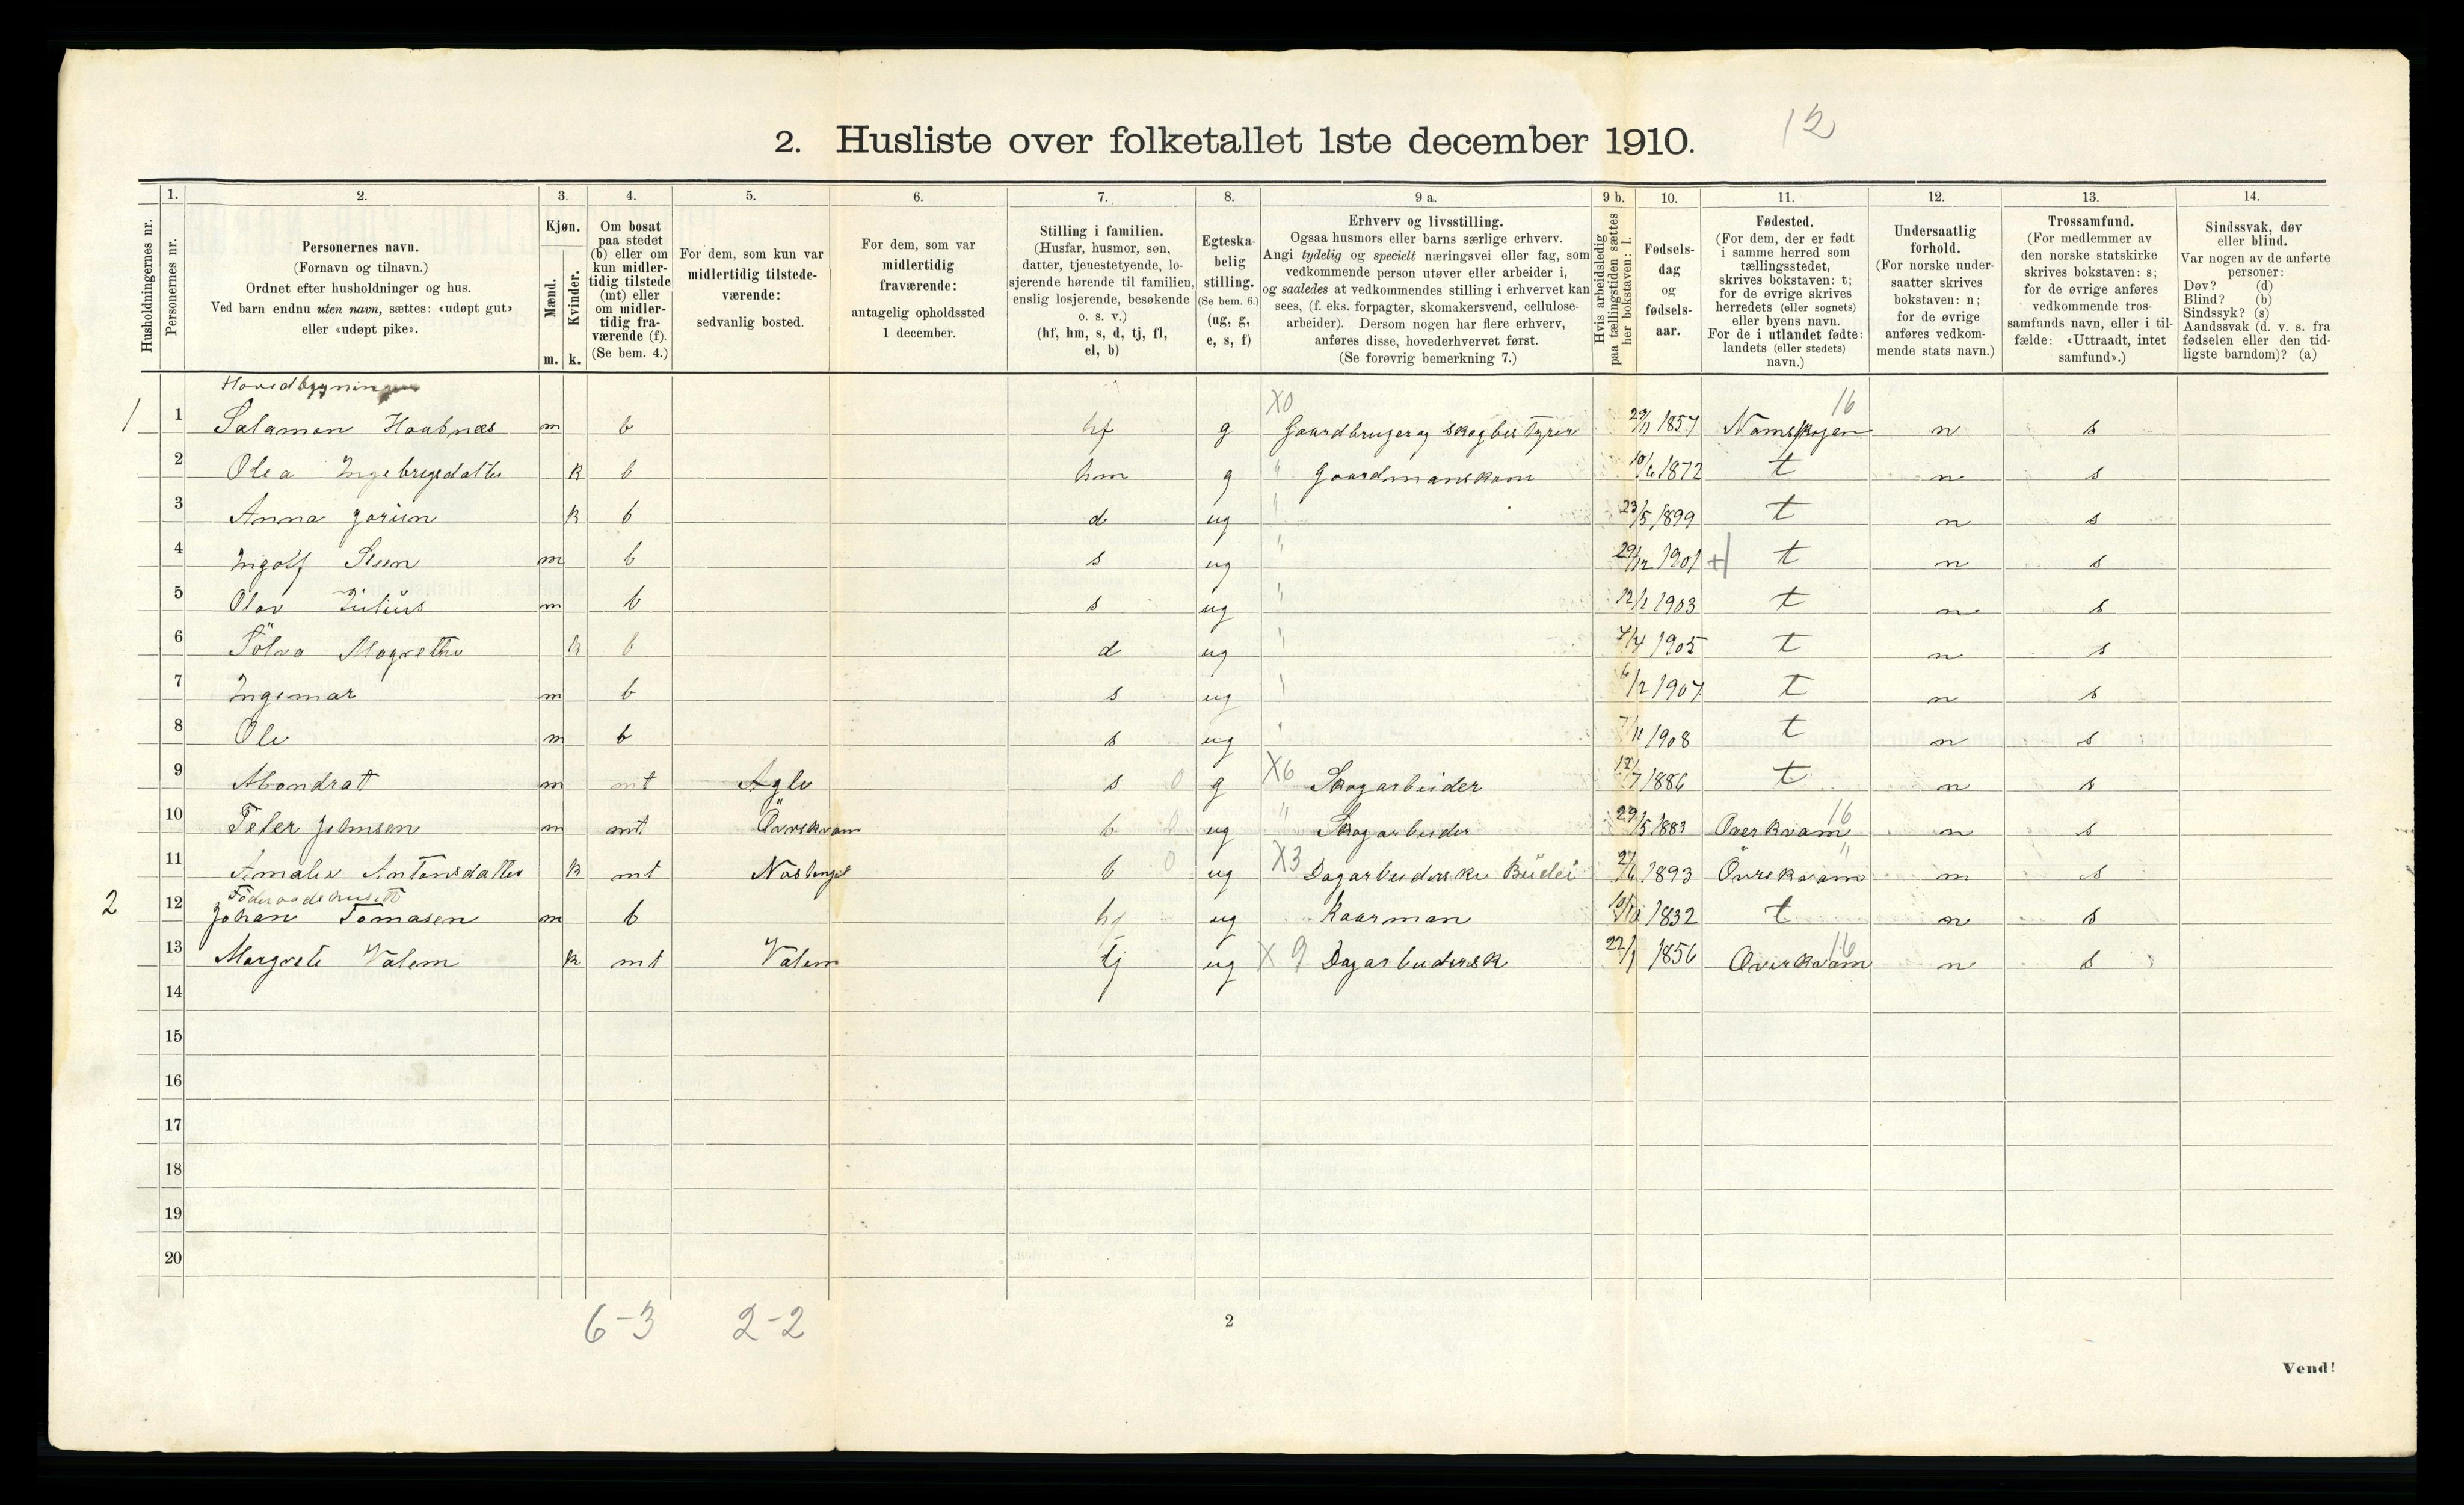 2. Husliste over folketallet 1ste december 1910.
12
1. 2. 3. 4. 5. 6. 7. 8. 9 a. 9 b. 10. 11. 12. 13. 14.
Husholdningernes nr.
Personernes nr.
Personernes navn.
(Fornavn og tilnavn.)
Ordnet efter husholdninger og hus.
Ved barn endnu uten navn, sættes: «udøpt gut»
eller «udøpt pike».
Kjøn.
Mænd.
Kvinder.
m. k.
Om bosat
paa stedet
(b) eller om
kun midler-
tidig tilstede
(mt) eller
om midler-
tidig fra-
værende (f).
(Se bem. 4.)
For dem, som kun var
midlertidig tilstede-
værende:
sedvanlig bosted.
For dem, som var
midlertidig
fraværende:
antagelig opholdssted
1 december.
Stilling i familien.
(Husfar, husmor, søn,
datter, tjenestetyende, lo-
sjerende hørende til familien,
enslig losjerende, besøkende
o. s. v.)
(hf, hm, s, d, tj, fl,
el, b)
Egteska-
belig
stilling.
(Se bem. 6.)
(ug, g,
e, s, f)
Erhverv og livsstilling.
Ogsaa husmors eller barns særlige erhverv.
Angi tydelig og specielt næringsvei eller fag, som
vedkommende person utøver eller arbeider i,
og saaledes at vedkommendes stilling i erhvervet kan
sees, (f. eks. forpagter, skomakersvend, cellulose-
arbeider). Dersom nogen har flere erhverv,
anføres disse, hovederhvervet først.
(Se forøvrig bemerkning 7.)
Hvis arbeidsledig
paa tællingstiden sættes
her bokstaven: l.
Fødsels-
dag
og
fødsels-
aar.
Fødested.
(For dem, der er født
i samme herred som
tællingsstedet,
skrives bokstaven: t;
for de øvrige skrives
herredets (eller sognets)
eller byens navn.
For de i utlandet fødte:
landets (eller stedets)
navn.)
Undersaatlig
forhold.
(For norske under-
saatter skrives
bokstaven: n;
for de øvrige
anføres vedkom-
mende stats navn.)
Trossamfund.
(For medlemmer av
den norske statskirke
skrives bokstaven: s;
for de øvrige anføres
vedkommende tros-
samfunds navn, eller i til-
fælde: «Uttraadt, intet
samfund».)
Sindssvak, døv
eller blind.
Var nogen av de anførte
personer:
Døv? (d)
Blind? (b)
Sindssyk? (s)
Aandssvak (d. v. s. fra
fødselen eller den tid-
ligste barndom)? (a)
Hovedbygningen
X0 16
1 1 Salamon Haabnæs m b hf g Gaardbruger og Skogbestyrer 29/11 1857 Namsskogen n s
2 Olea Ingebrigsdatter k b hm g " Gaardmanskone 10/6 1872 t n s
3 Anna Jorun k b d ug " 23/5 1899 t n s
4 Ingolf Steen m b s ug " 29/12 1901 t n s
5 Olav Julius m b s ug " 12/2 1903 t n s
6 Sölva Magrethe k b d ug " 4/4 1905 t n s
7 Ingemar m b s ug " 6/2 1907 t n s
8 Ole m b s ug " 7/11 1908 t n s
9 mt Agle s 0 g X6 Skogarbeider 1886 t n s
10 Peter Johnsen m mt Övrekvam b 0 ug " Skogarbeider 29/5 1883 Overkvam 16 n s
11 Amalie Antonsdatter k mt b 0 ug X3 Dagarbeiderske Büdei 27/6 1893 Övrekvam " n s
Föderaadehuset
2 12 Johan Tomasen m b hf ug Kaarman 1832 t n s
13 Margrete Valem k mt Valem tj ug X 9 Dagarbeidersk 22/1 1856 Overkvam 16 n s
14
15
16
17
18
19
20
6-3 2-2
2
Vend!